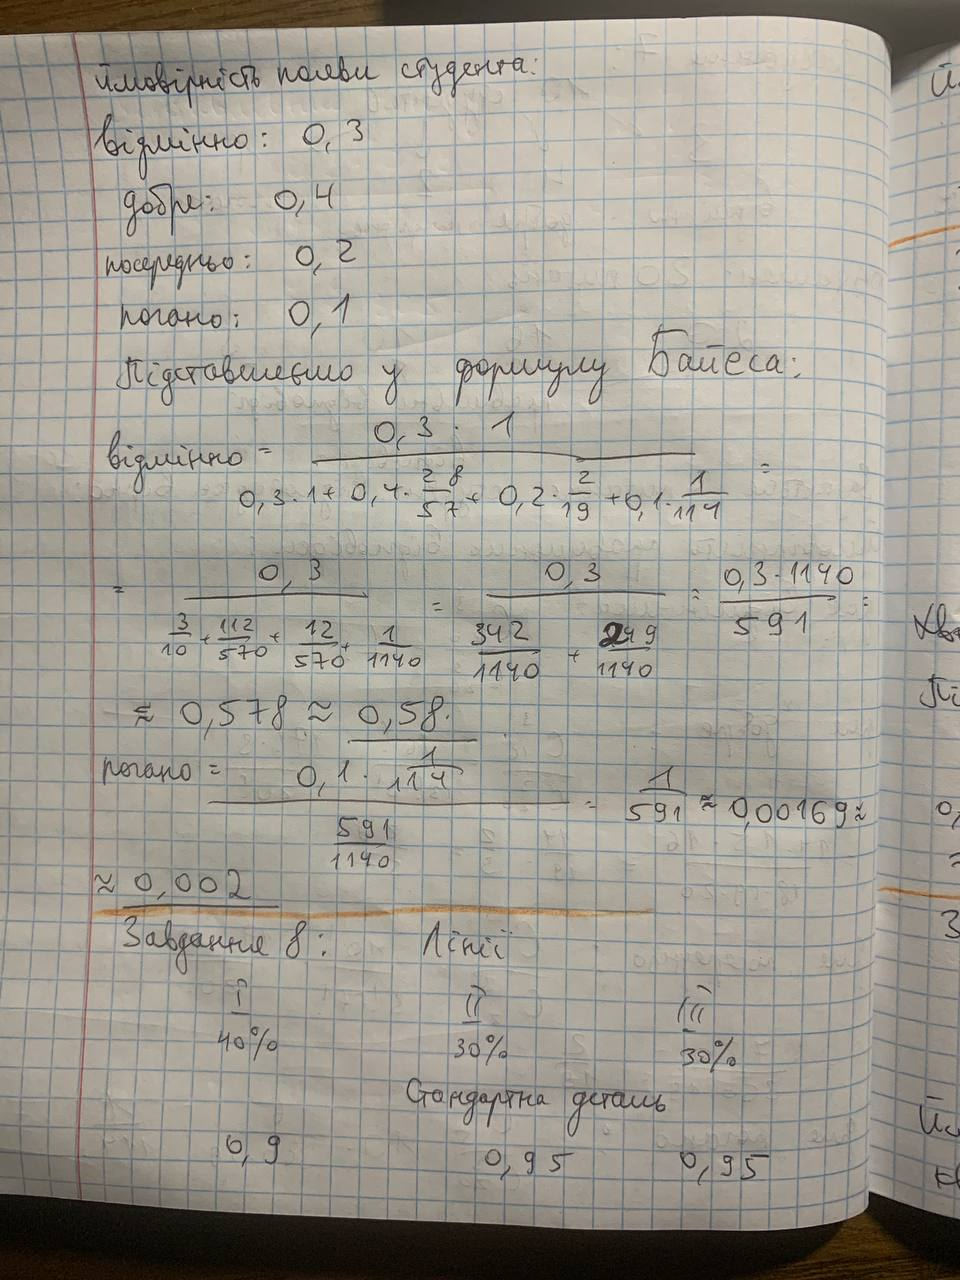 ймовірність появи студента:
відмінно: 0,3
добре: 0,4
посередньо: 0,2
погано: 0,1
Підставляємо у формулу Байеса:
відмінно = 0,3 · 1 / 0,3 · 1 + 0,4 · 28/57 + 0,2 · 2/19 + 0,1 · 1/114 =
= 0,3 / 3/10 + 112/570 + 12/570 + 1/1140 = 0,3 / 342/1140 + 249/1140 = 0,3 · 1140 / 591 =
≈ 0,578 ≈ 0,58.
погано = 0,1 · 1/114 / 591/1140 = 1/591 ≈ 0,00169 ≈
≈ 0,002
Завдання 8: Лінії
I II III
40% 30% 30%
Стандартна деталь
0,9 0,95 0,95